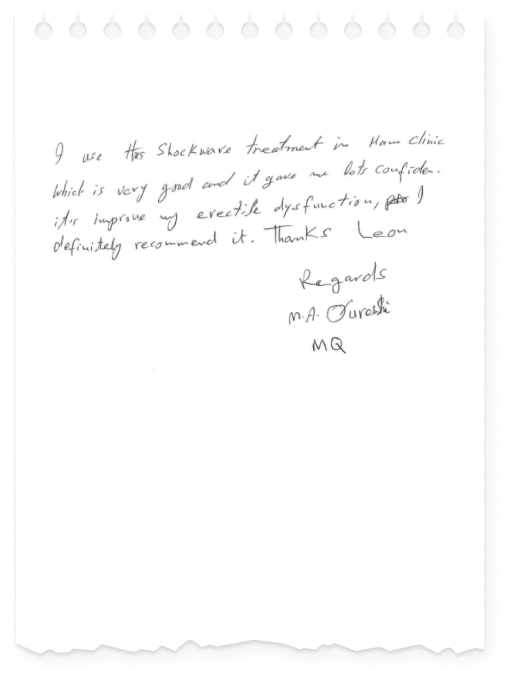 I use this Shockwave treatment in Ham clinic
which is very good and it gave me lots confiden.
it's improve my erectile dysfunction, I
definitely recommend it. Thanks Leon
Regards
M.A. Qureshi
MQ